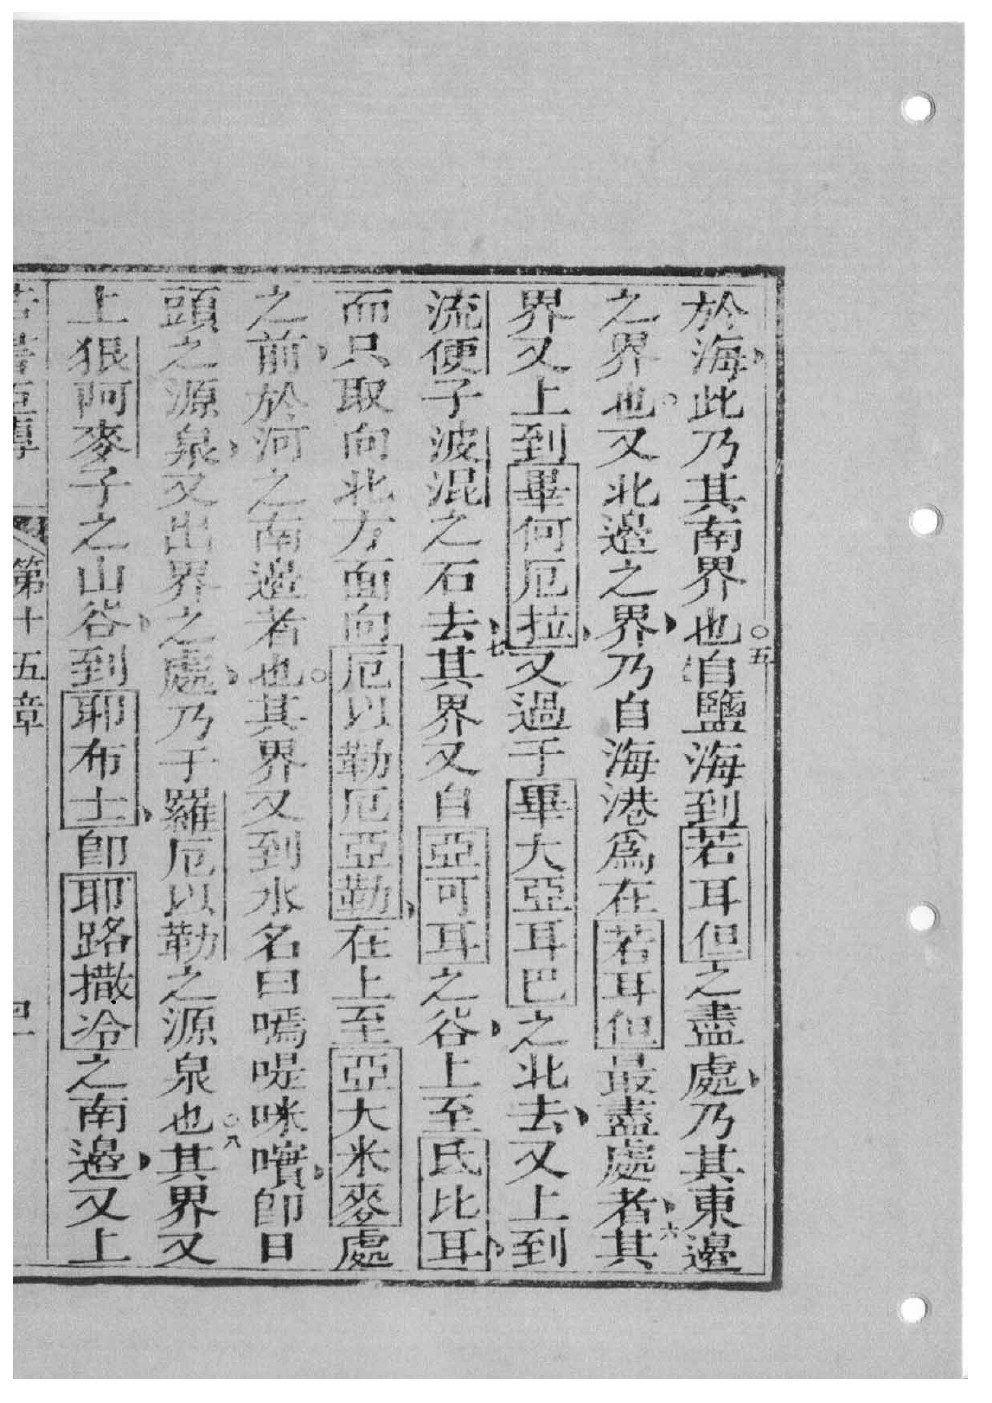 於海此乃其南界也○五自鹽海到若耳但之盡處乃其東邊
之界也○又北邉之界乃自海港爲在若耳但最盡處者六其
界又上到畢何厄拉又過于畢大亞耳巴之北去又上到
流便子波混之石去七其界又自亞可耳之谷上至氏比耳
而只取向北方面向厄以勒厄亞勒在上至亞大米麥處
之前於河之南邉者也○其界又到水名曰嗎哫咪嚊卽日
頭之源泉又出界之處乃于羅厄以勒之源泉也○八其界又
上狠阿麥子之山谷到耶布士卽耶路撒冷之南邉又上
第十五章